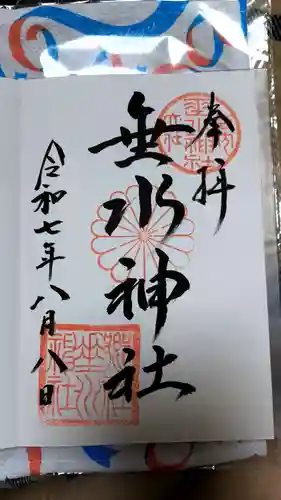 奉拝
垂水神社
令和七年八月八日